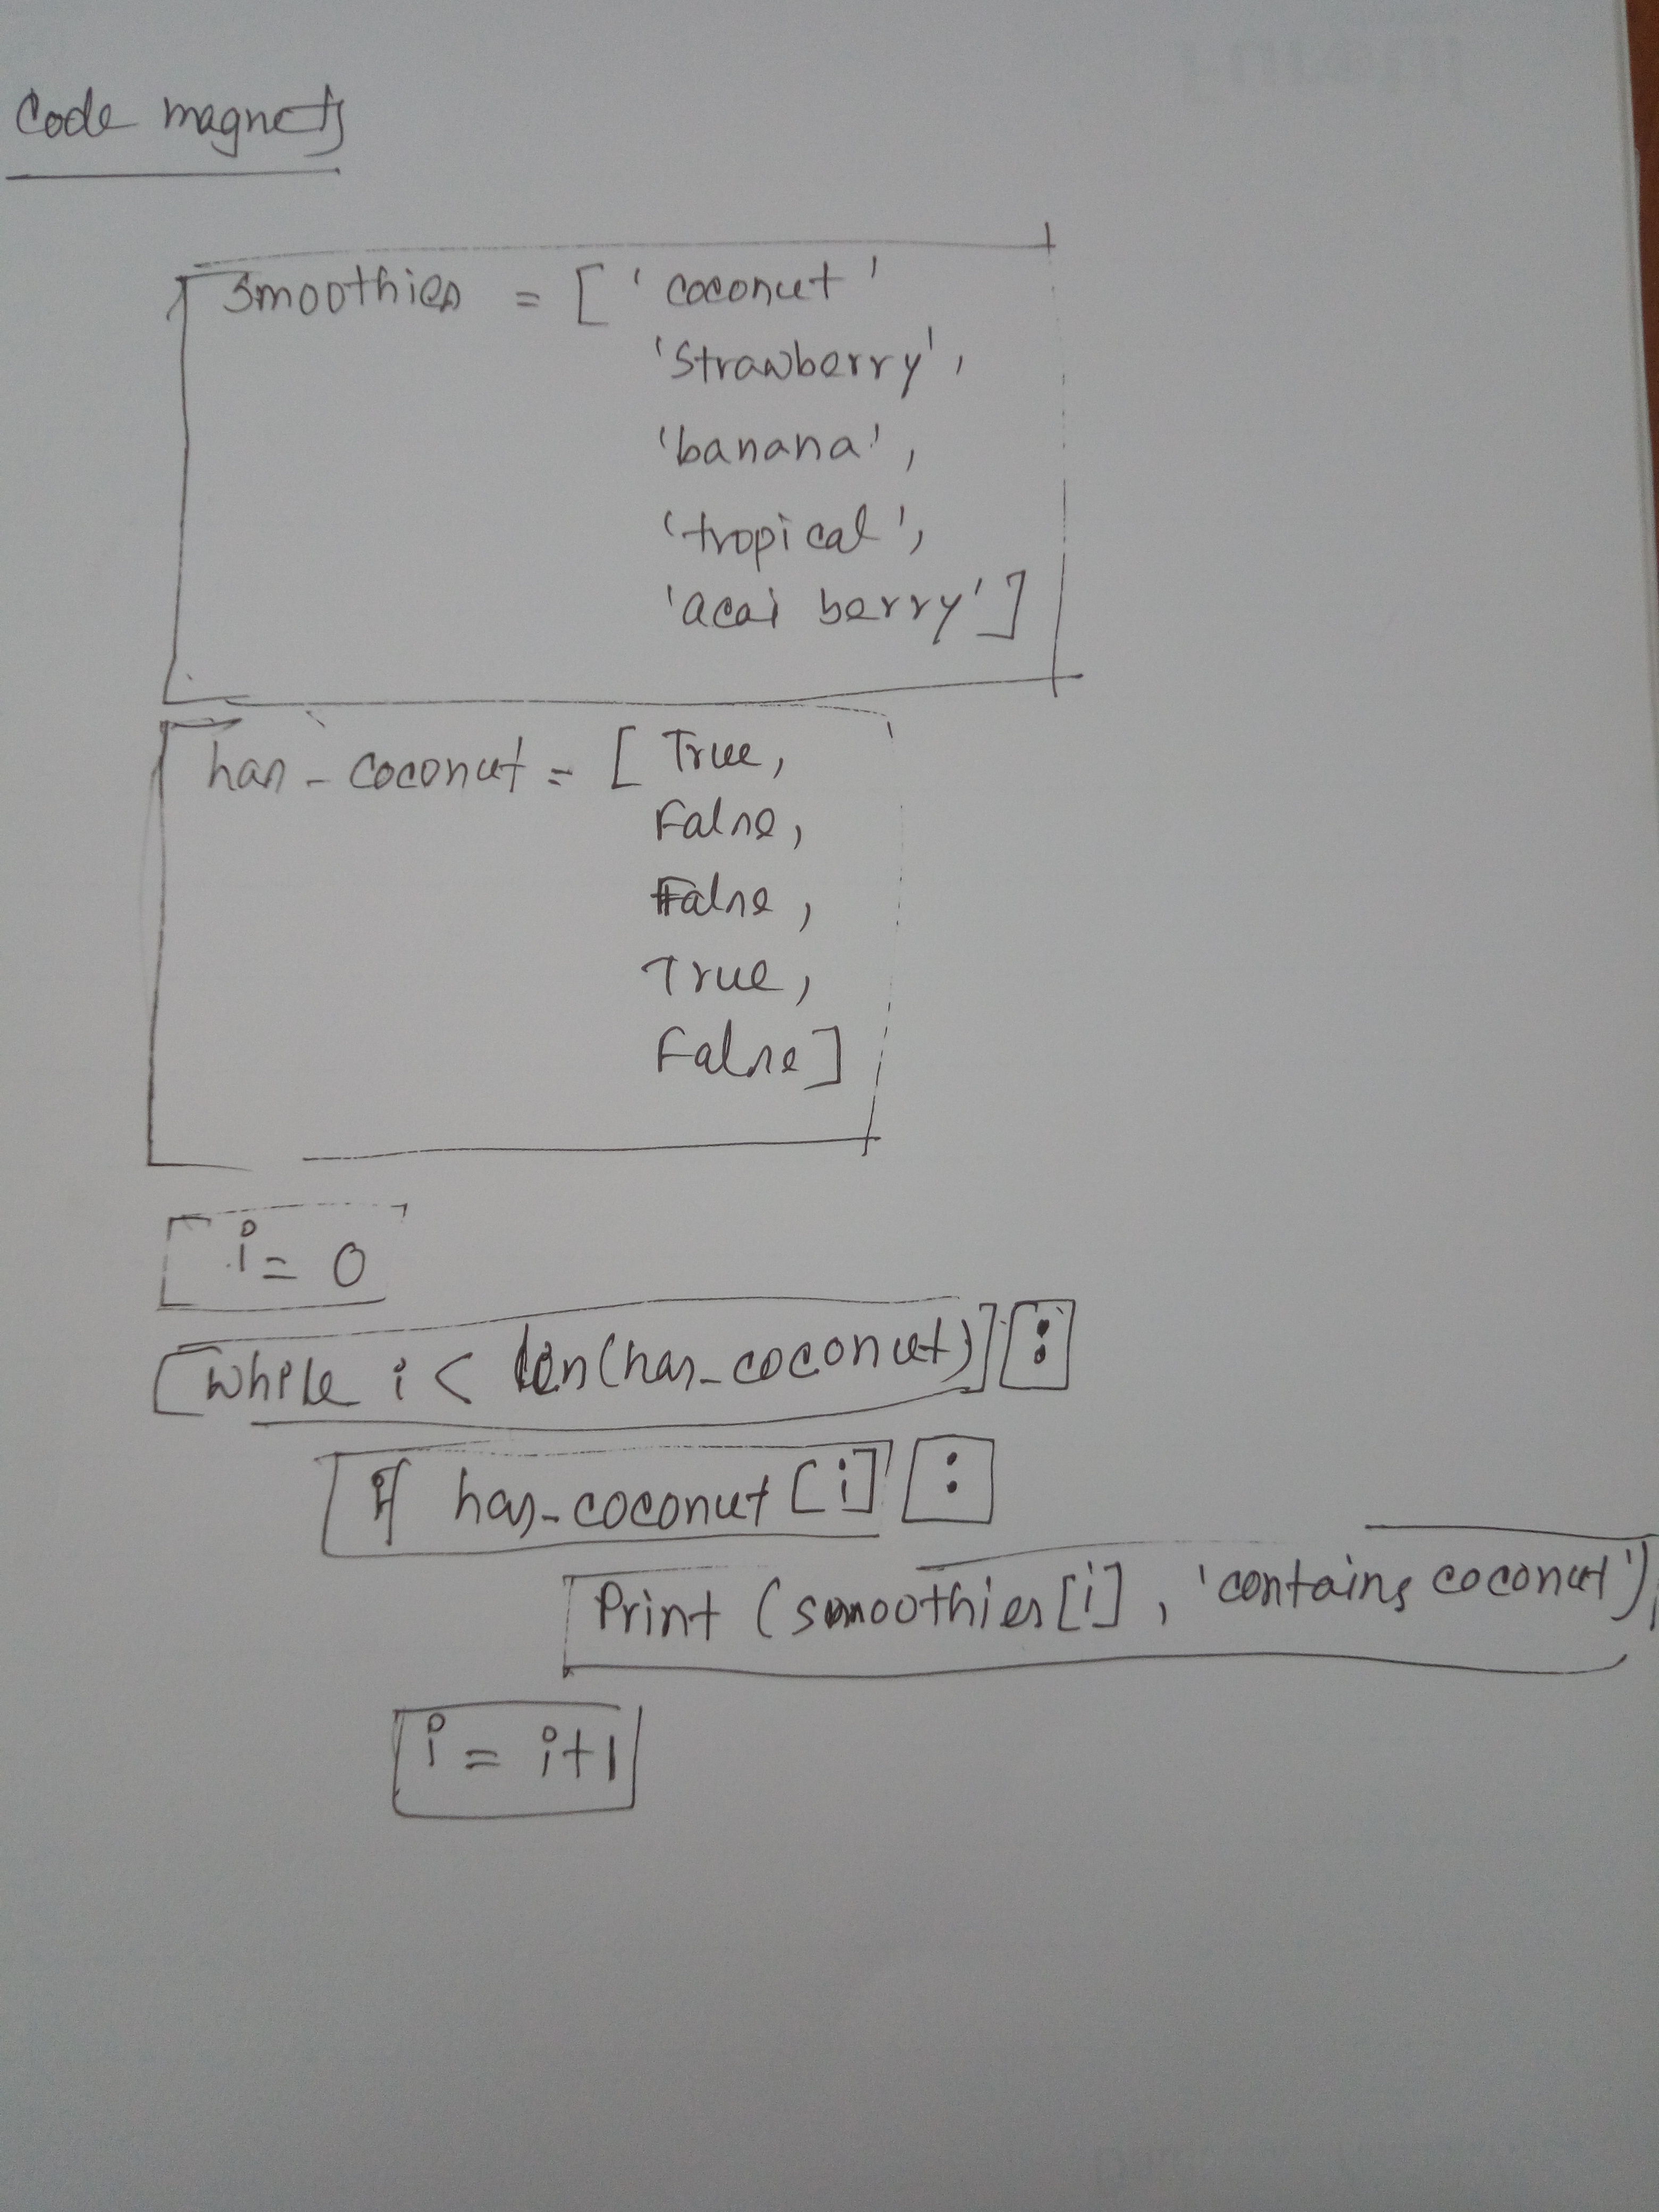 Code magnets
smoothies = ['coconut'
'Strawberry',
'banana',
'tropical',
'acai berry']
has_coconut = [True,
False,
False,
True,
False]
i = 0
while i < len(has_coconut) :
if has_coconut [i] :
Print (smoothies[i], 'contains coconut')
i = i+1